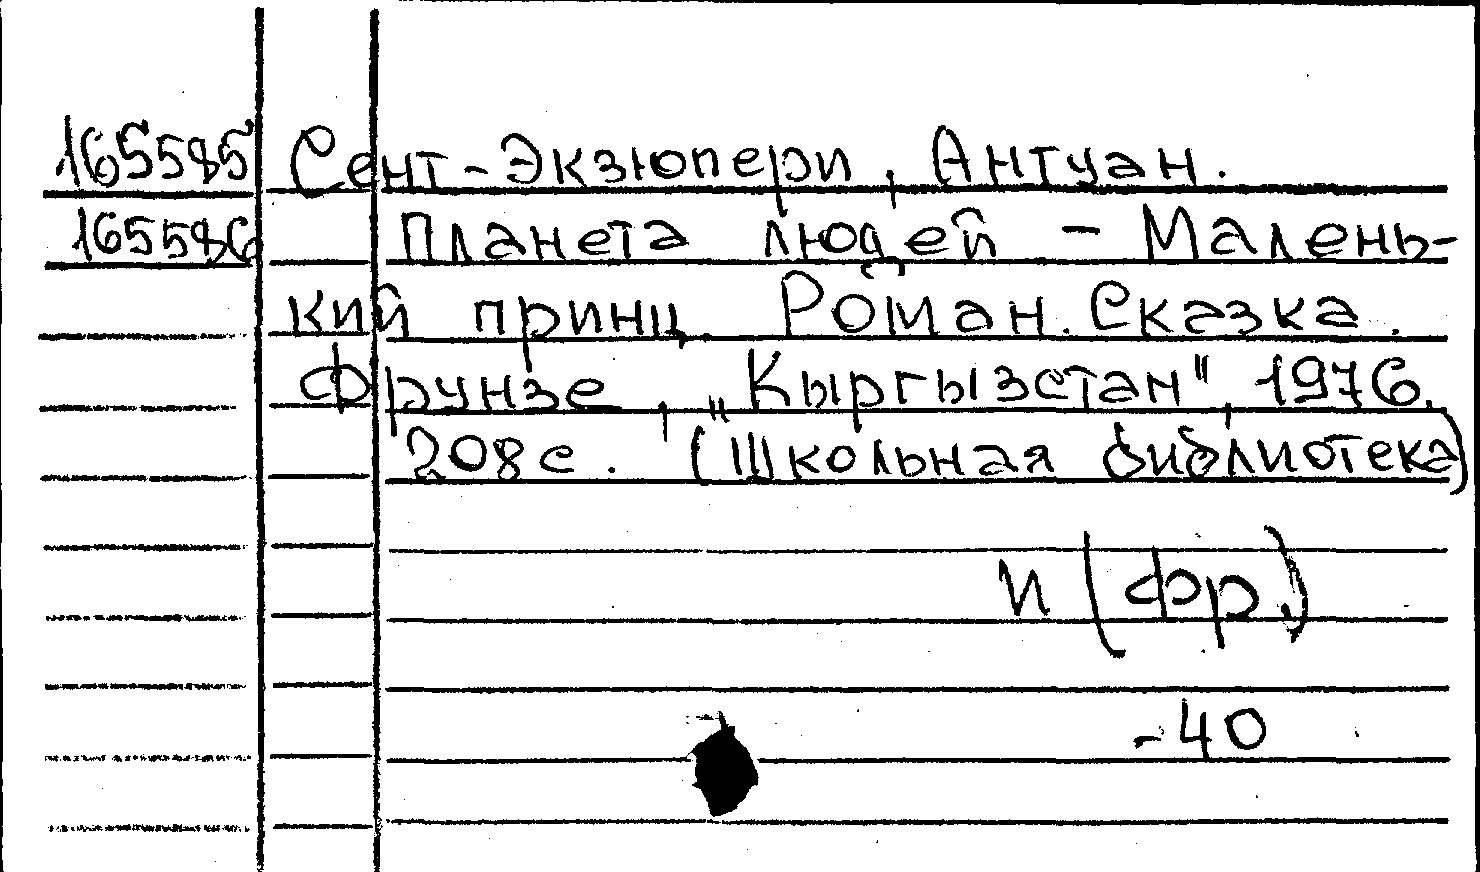 165585 Сент-Экзюпери, Антуан.
165586 Планета людей - Малень-
кий принц. Роман. Сказка.
Фрунзе, „Кыргызстан", 1976.
208 с. (Школьная библиотека)
И (фр.)
-40